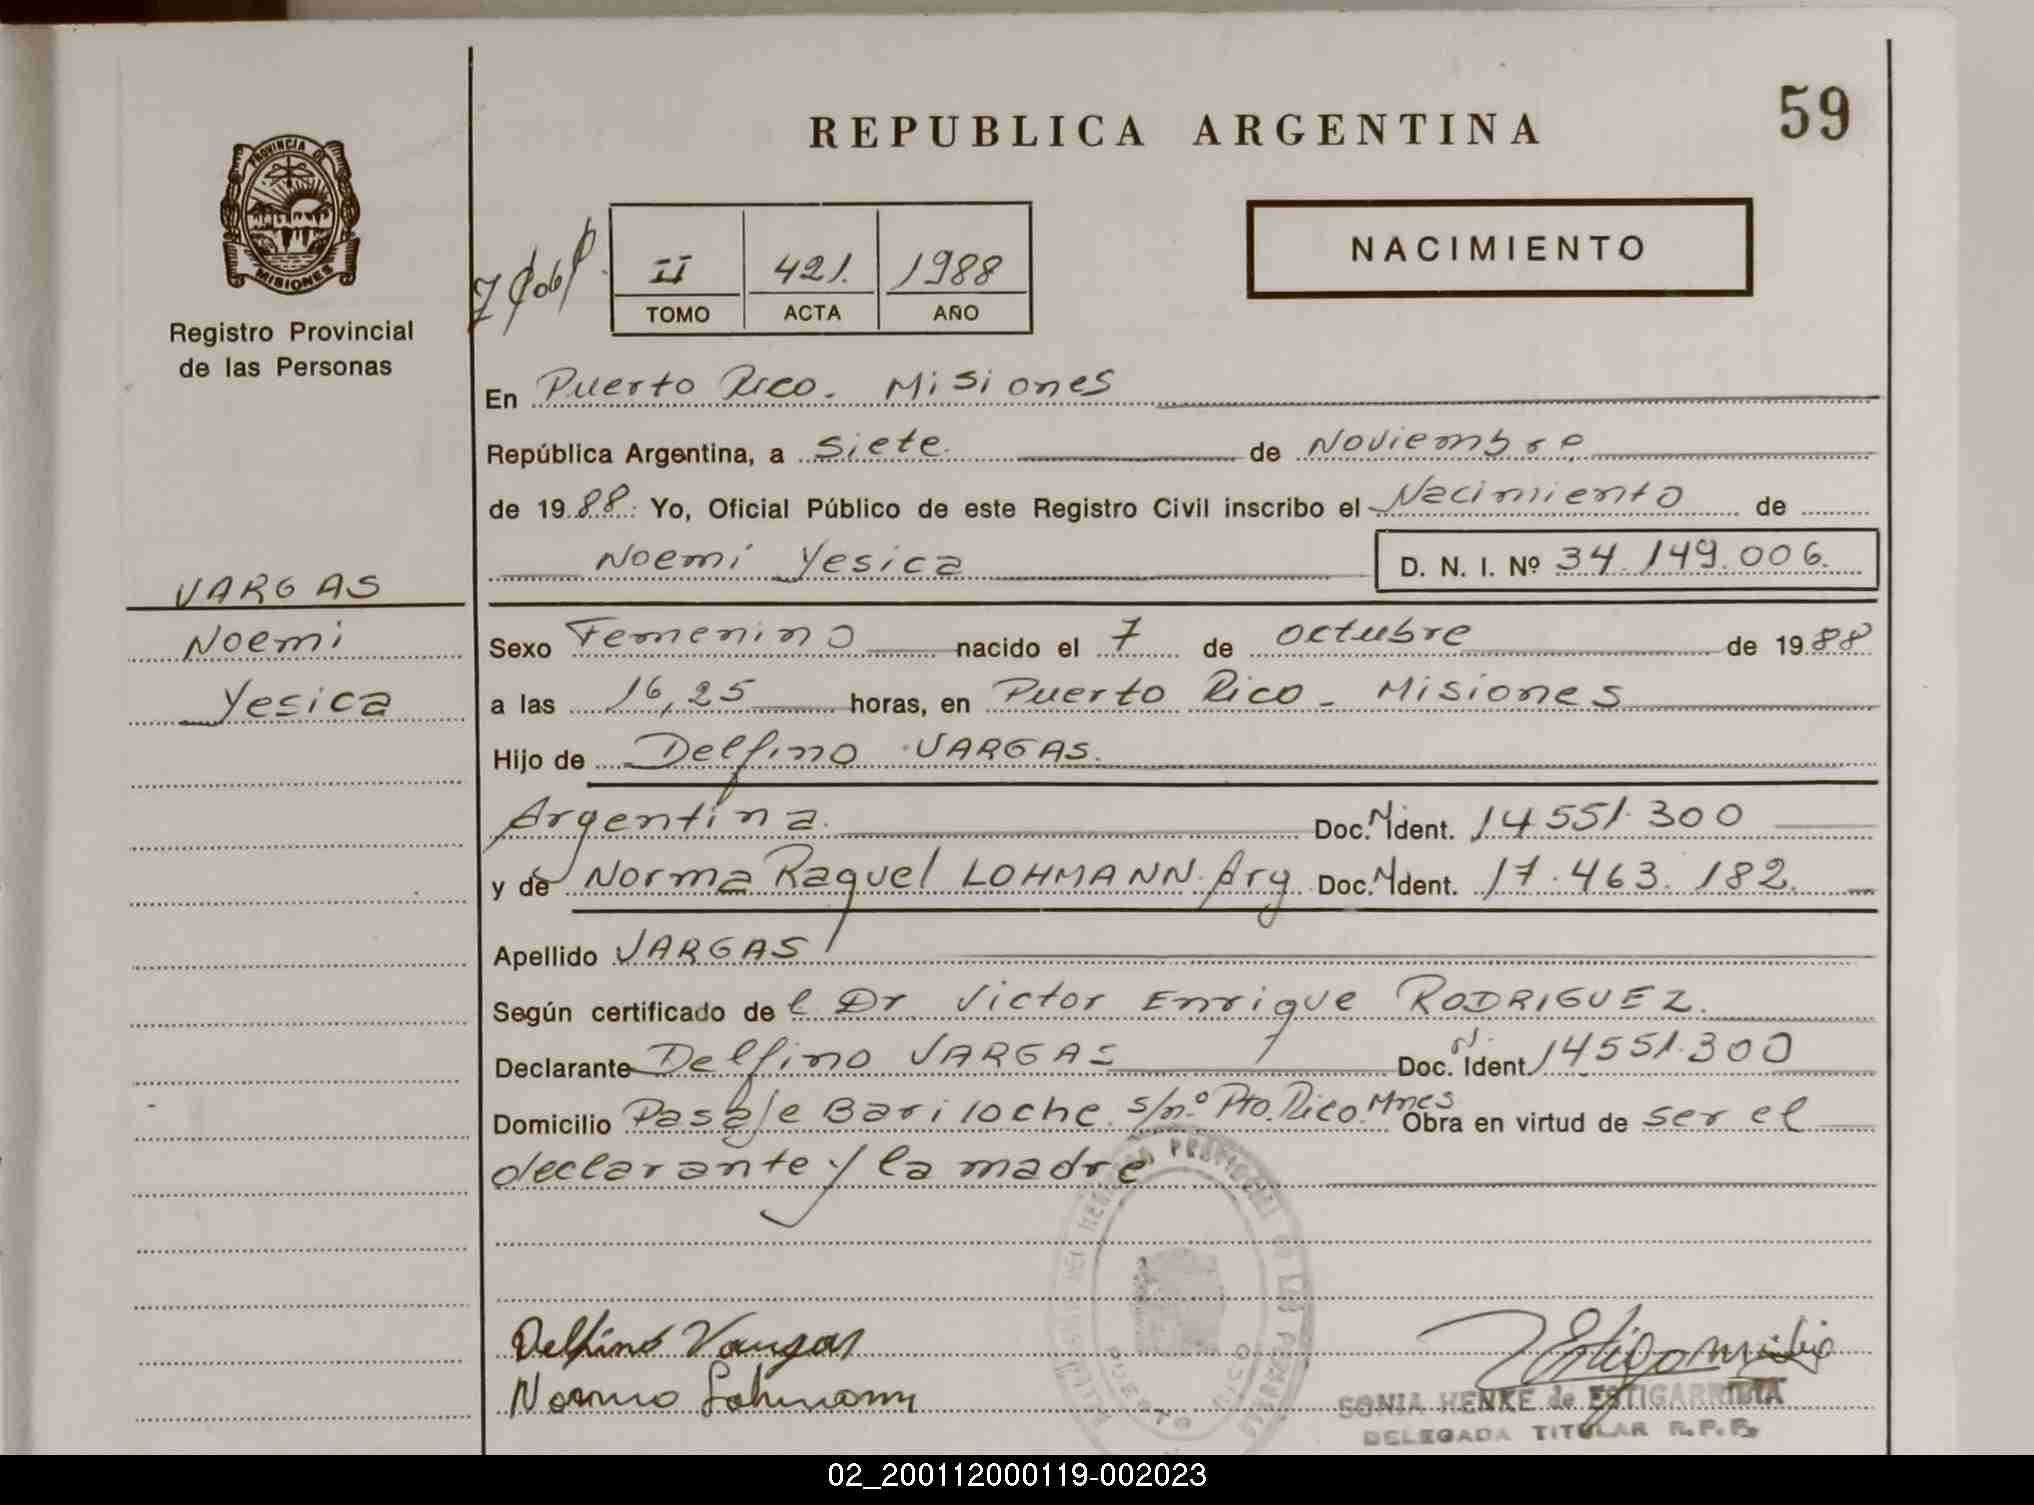 REPUBLICA ARGENTINA
59
PROVINCIA DE
MISIONES
Registro Provincial
de las Personas
II 421. 1988
TOMO ACTA AÑO
NACIMIENTO
En Puerto Rico. Misiones
República Argentina, a siete de Noviembre
de 1988 Yo, Oficial Público de este Registro Civil inscribo el Nacimiento de
Noemi Yesica D. N. I. Nº 34.149.006.
VARGAS
Noemi
Yesica
Sexo Femenino nacido el 7 de octubre de 1988
a las 16,25 horas, en Puerto Rico - Misiones
Hijo de Delfino VARGAS.
Argentina. Doc. N Ident. 14551.300
y de Norma Raquel LOHMANN. Arg Doc. N Ident. 17.463.182.
Apellido VARGAS
Según certificado de l Dr Victor Enrique RODRIGUEZ.
Declarante Delfino VARGAS Doc. N. Ident 14551.300
Domicilio Pasaje Bariloche s/n.º Pto. Rico. Mnes Obra en virtud de ser el
declarante y la madre
Delfino Vargas
Norma Lohmann
SONIA HENKE de ESTIGARRIBIA
DELEGADA TITULAR R.P.P.
02_200112000119-002023